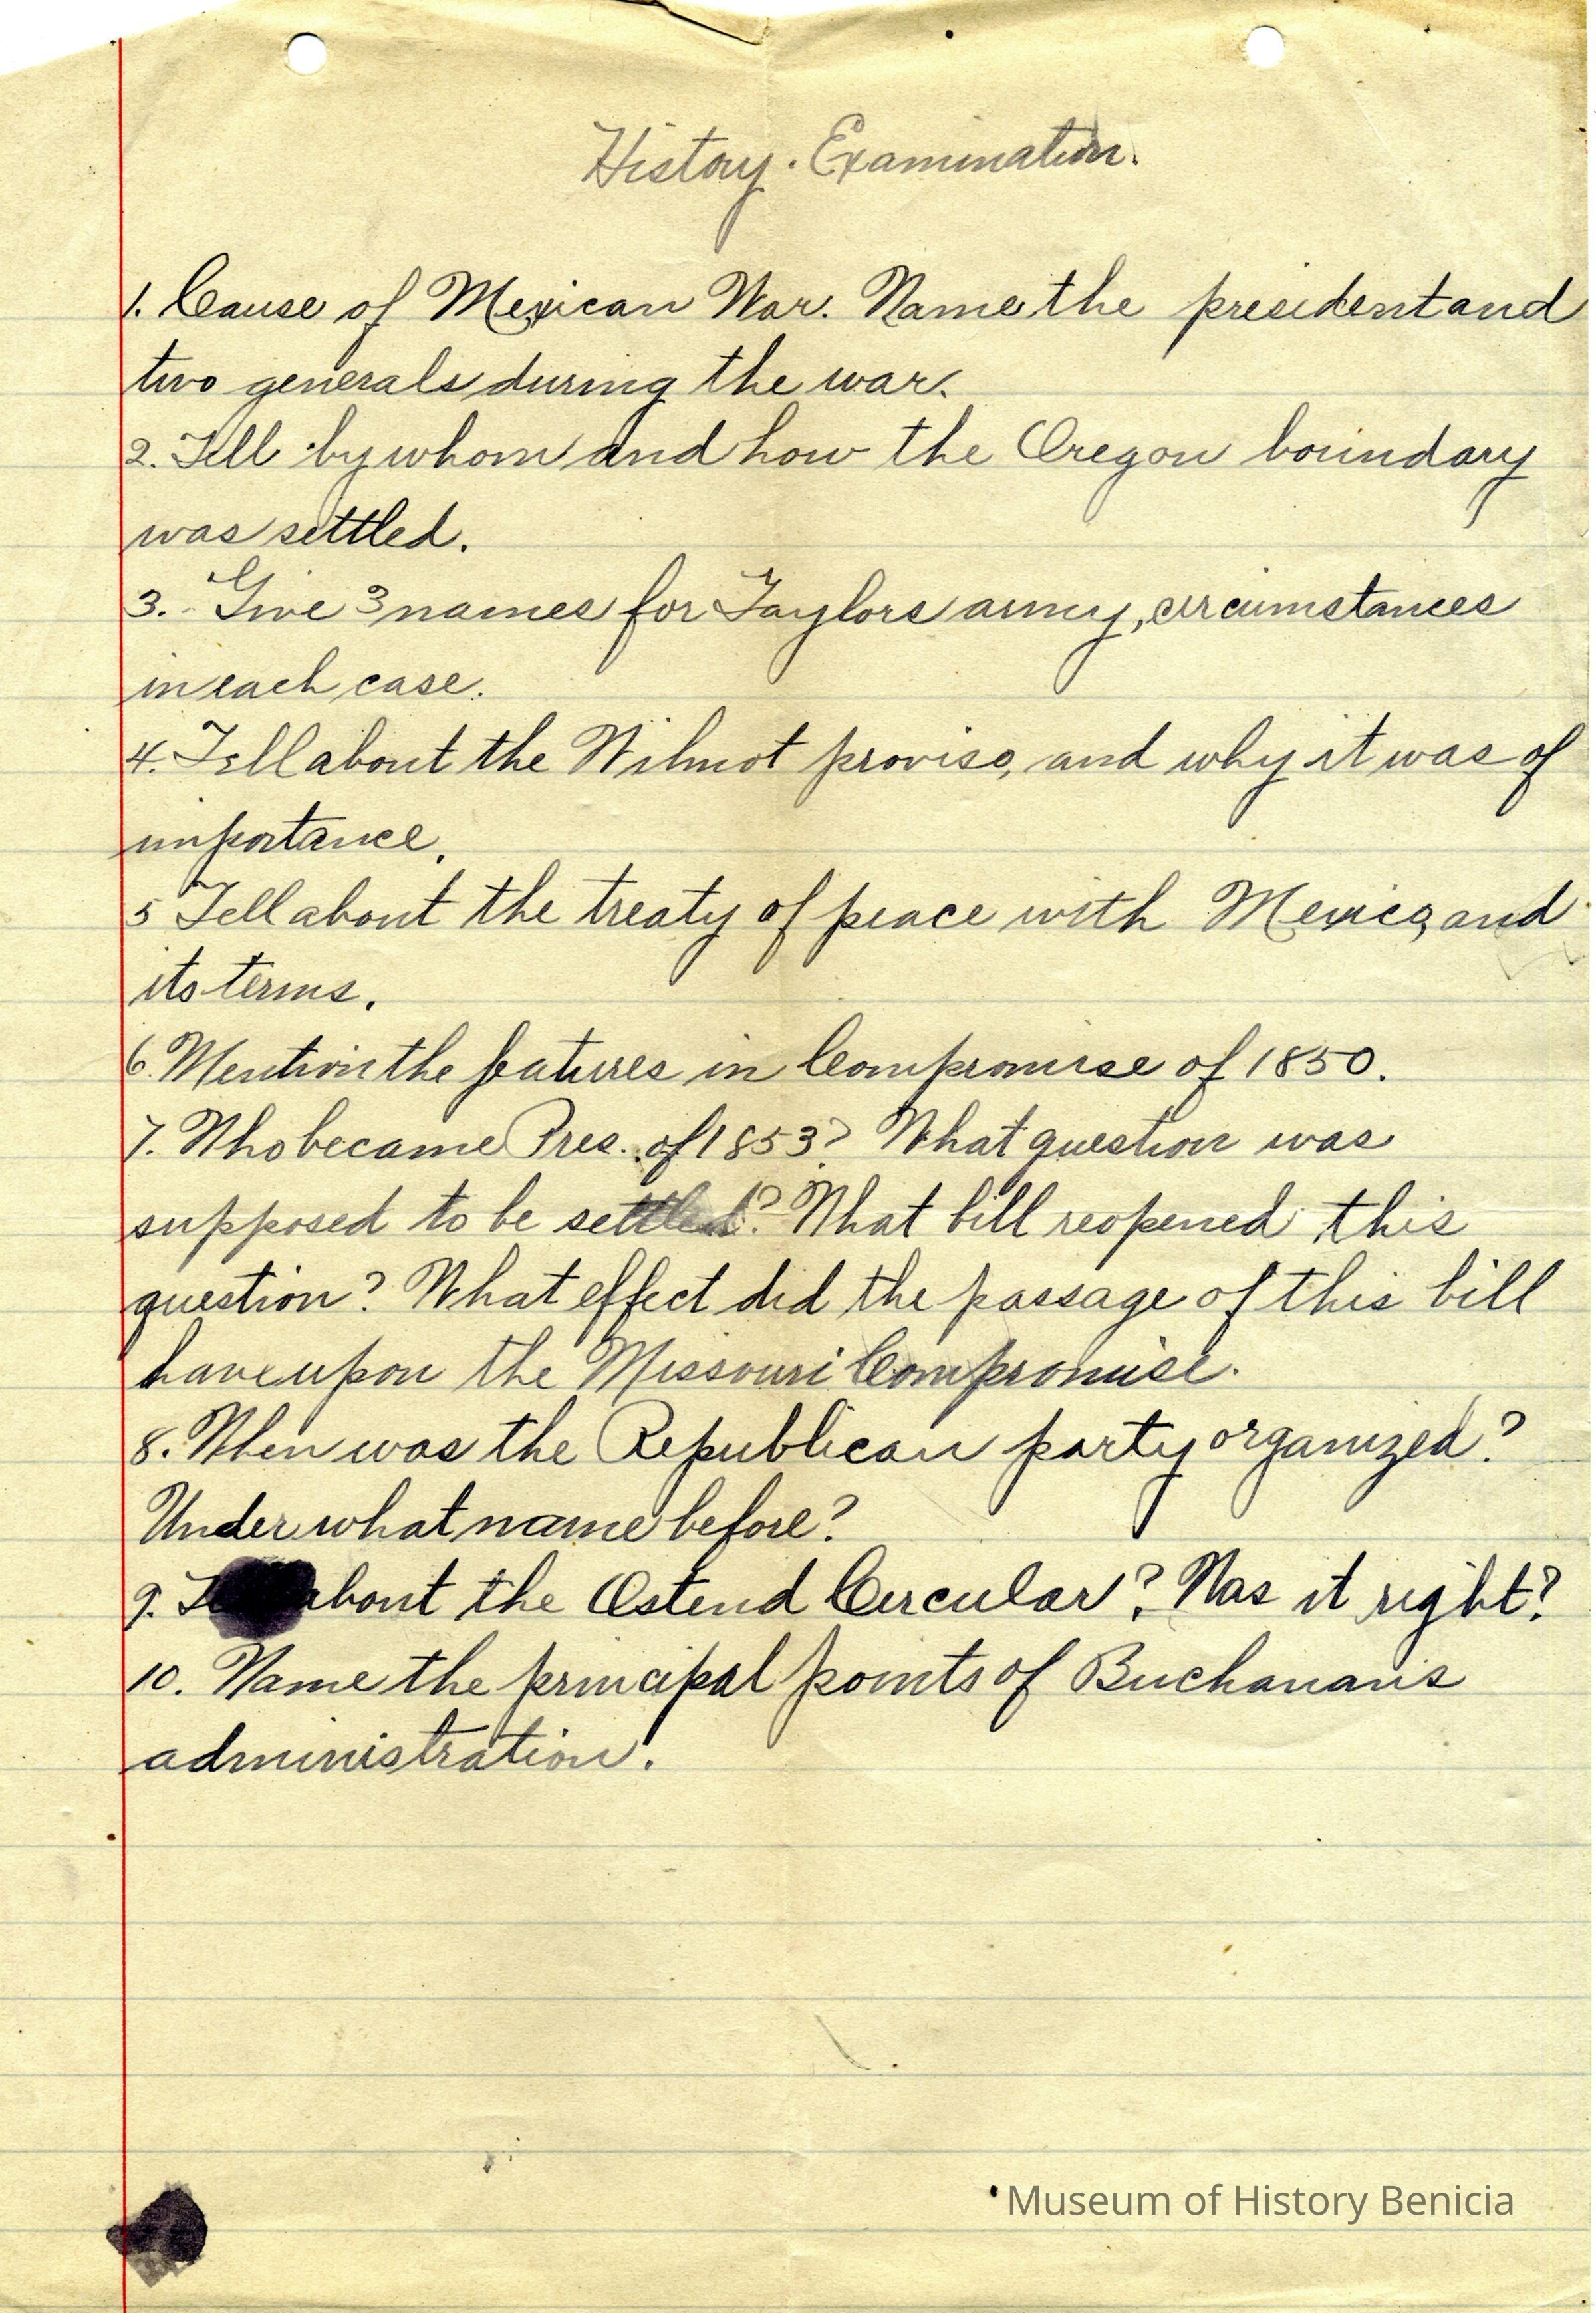 History. Examination.
1. Cause of Mexican War. Name the president and
two generals during the war.
2. Tell by whom and how the Oregon boundary
was settled.
3. Give 3 names for Taylors army, circumstances
in each case.
4. Tell about the Wilmot proviso, and why it was of
importance.
5 Tell about the treaty of peace with Mexico, and
its terms.
6. Mention the features in Compromise of 1850.
7. Who became Pres. of 1853? What question was
supposed to be settled? What bill reopened this
question? What effect did the passage of this bill
have upon the Missouri Compromise.
8. When was the Republican party organized?
Under what name before?
9. about the Ostend Circular? Was it right?
10. Name the principal points of Buchanan's
administration.
Museum of History Benicia